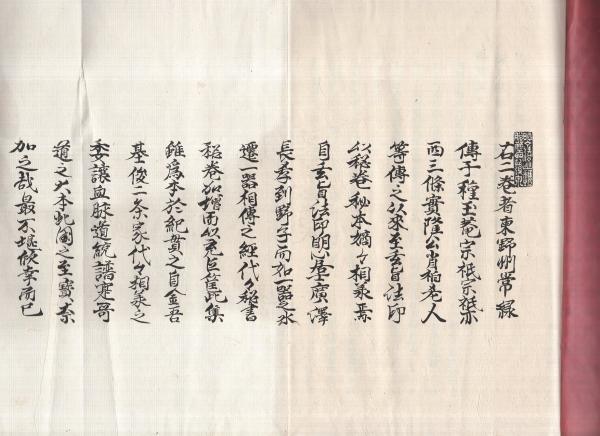 右二巻者東野州常縁
傳于種玉菴宗祇宗祇亦
西三條實隆公肖柏老人
等傳之以來至玄旨法印
以秘巻一秘本嫡々相承焉
自玄旨法印明心居士廣澤
長孝到野子而如一器之水
遷一器相傳之經代々秘書
秘巻加増而以充巨筐此集
雖為本於紀貫之自金吾
基俊二条家代々相承之
委譲血脉道統譜寔哥
道之大本此國之至寶奈
加之哉最不堪僥幸而已